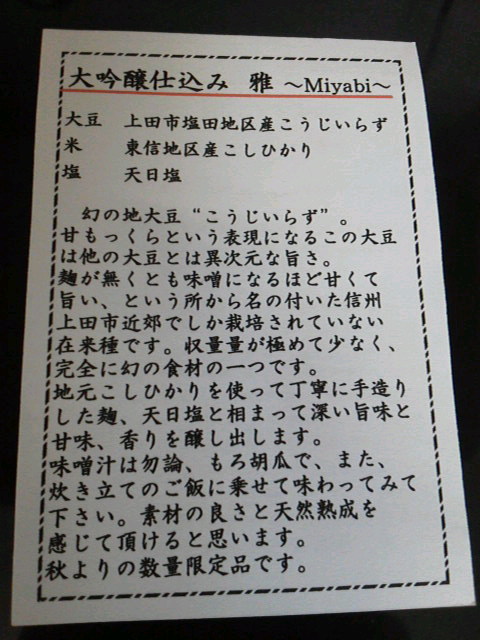 大吟醸仕込み 雅 ～Miyabi～
大豆 上田市塩田地区産こうじいらず
米 東信地区産こしひかり
塩 天日塩
幻の地大豆“こうじいらず”。
甘もっくらという表現になるこの大豆
は他の大豆とは異次元な旨さ。
麹が無くとも味噌になるほど甘くて
旨い、という所から名の付いた信州
上田市近郊でしか栽培されていない
在来種です。収量量が極めて少なく、
完全に幻の食材の一つです。
地元こしひかりを使って丁寧に手造り
した麹、天日塩と相まって深い旨味と
甘味、香りを醸し出します。
味噌汁は勿論、もろ胡瓜で、また、
炊き立てのご飯に乗せて味わってみて
下さい。素材の良さと天然熟成を
感じて頂けると思います。
秋よりの数量限定品です。